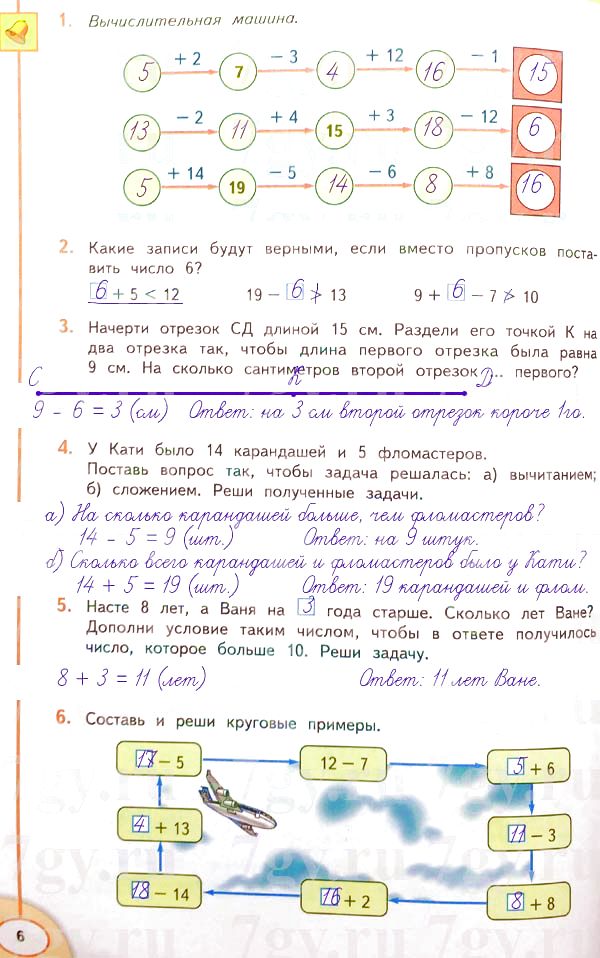 1. Вычислительная машина.
+ 2 – 3 + 12 – 1
5 7 4 16 15
– 2 + 4 + 3 – 12
13 11 15 18 6
+ 14 – 5 – 6 + 8
5 19 14 8 16
2. Какие записи будут верными, если вместо пропусков поста-
вить число 6?
6 + 5 < 12 19 – 6 > 13 9 + 6 – 7 > 10
3. Начерти отрезок СД длиной 15 см. Раздели его точкой К на
два отрезка так, чтобы длина первого отрезка была равна
9 см. На сколько сантиметров второй отрезок ... первого?
С К Д
9 - 6 = 3 (см) Ответ: на 3 см второй отрезок короче 1го.
4. У Кати было 14 карандашей и 5 фломастеров.
Поставь вопрос так, чтобы задача решалась: а) вычитанием;
б) сложением. Реши полученные задачи.
а) На сколько карандашей больше, чем фломастеров?
14 - 5 = 9 (шт.) Ответ: на 9 штук.
б) Сколько всего карандашей и фломастеров было у Кати?
14 + 5 = 19 (шт.) Ответ: 19 карандашей и флом.
5. Насте 8 лет, а Ваня на 3 года старше. Сколько лет Ване?
Дополни условие таким числом, чтобы в ответе получилось
число, которое больше 10. Реши задачу.
8 + 3 = 11 (лет) Ответ: 11 лет Ване.
6. Составь и реши круговые примеры.
17 – 5 12 – 7 5 + 6
4 + 13 11 – 3
18 – 14 16 + 2 8 + 8
7gy.ru 7gy.ru 7gy.ru
6